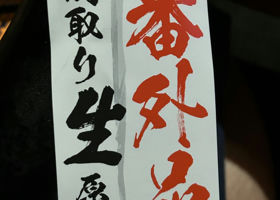 番外品
取り生原